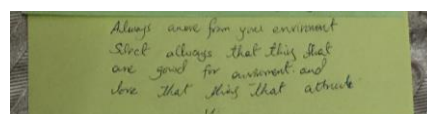 Always aware from your environment
Select allways that thing that
are good for environment and
love that thing that attracte